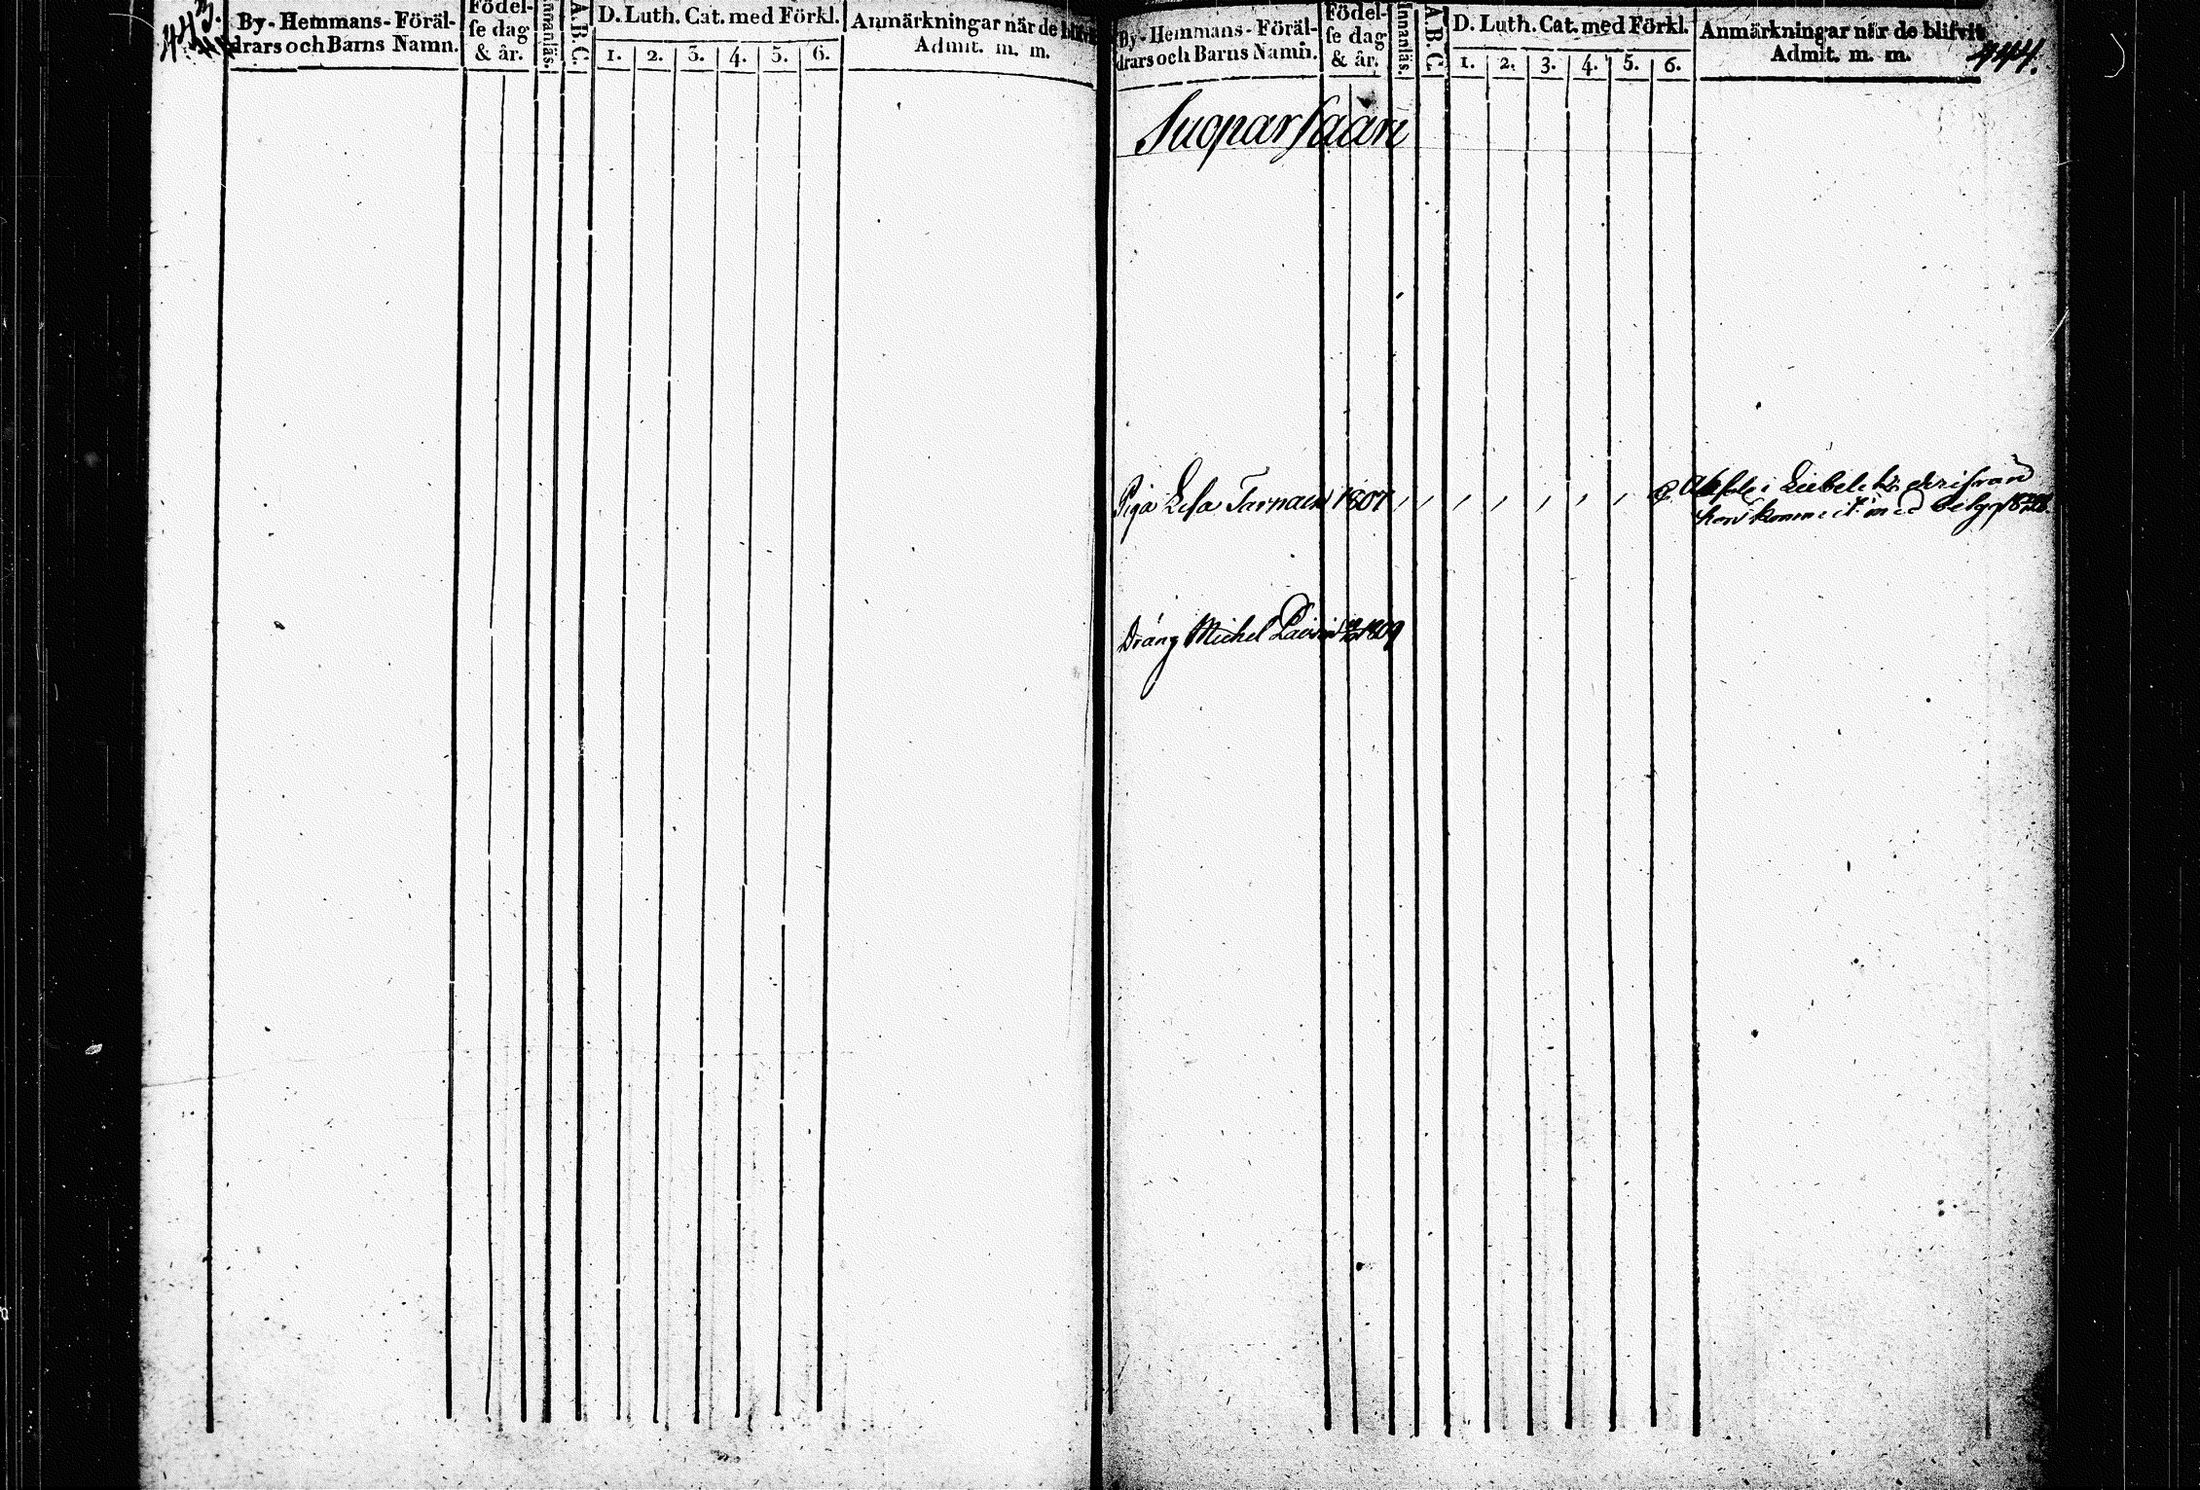 443.
By- Hemmans- Föräl-
drars och Barns Namn.
Födel-
se dag
& år.
Innanläs.
A.B.C.
D. Luth. Cat. med Förkl.
1. 2. 3. 4. 5. 6.
Anmärkningar når de blifvit
Admit. m. m.
By- Hemmans- Föräl-
drars och Barns Namn.
Födel-
se dag
& år.
Innanläs.
A.B.C.
D. Luth. Cat. med Förkl.
1. 2. 3. 4. 5. 6.
Anmärkningar når de blifvit
Admit. m. m.
444.
Suoparsaari
Piga Lisa Tarnain 1807
i Libelitz
hon kommit med
Dräng Michel 1809